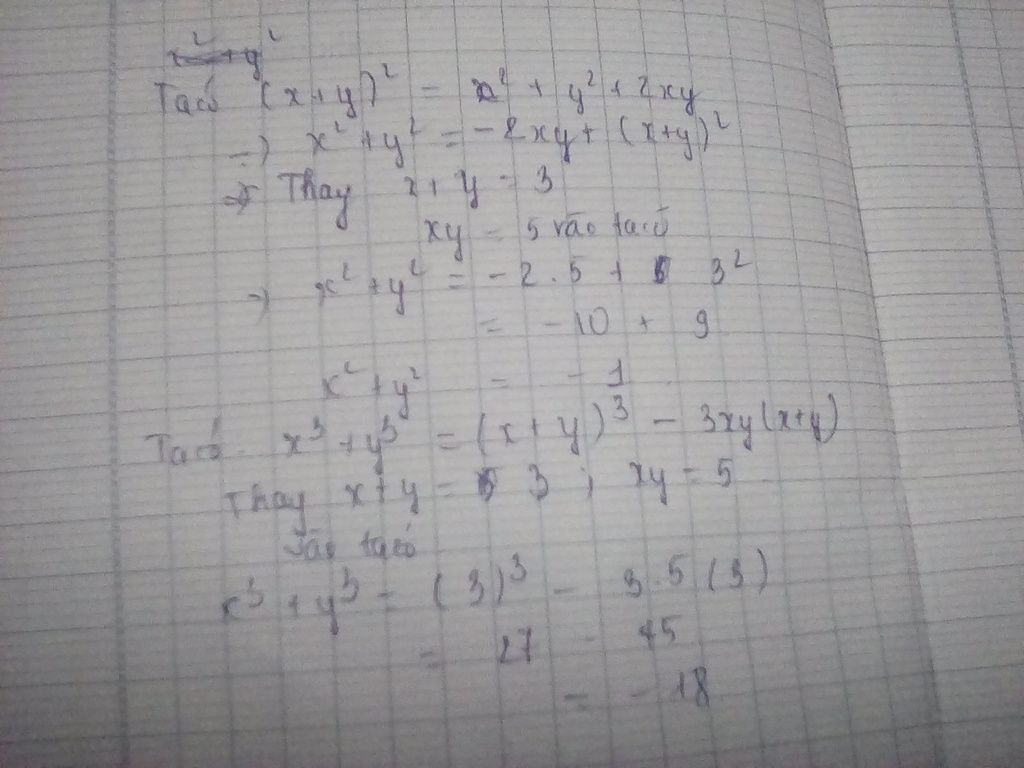 x² + y²
Ta có (x+y)² = x² + y² + 2xy
=) x² + y² = -2xy + (x+y)²
=> Thay x + y = 3
xy = 5 vào ta có
=) x² + y² = -2.5 + 3²
= -10 + 9
x² + y² = -1
Ta có. x³ + y³ = (x+y)³ - 3xy(x+y)
Thay x + y = 3 ; xy = 5
vào ta có
x³ + y³ = (3)³ - 3.5(3)
= 27 - 45
= -18